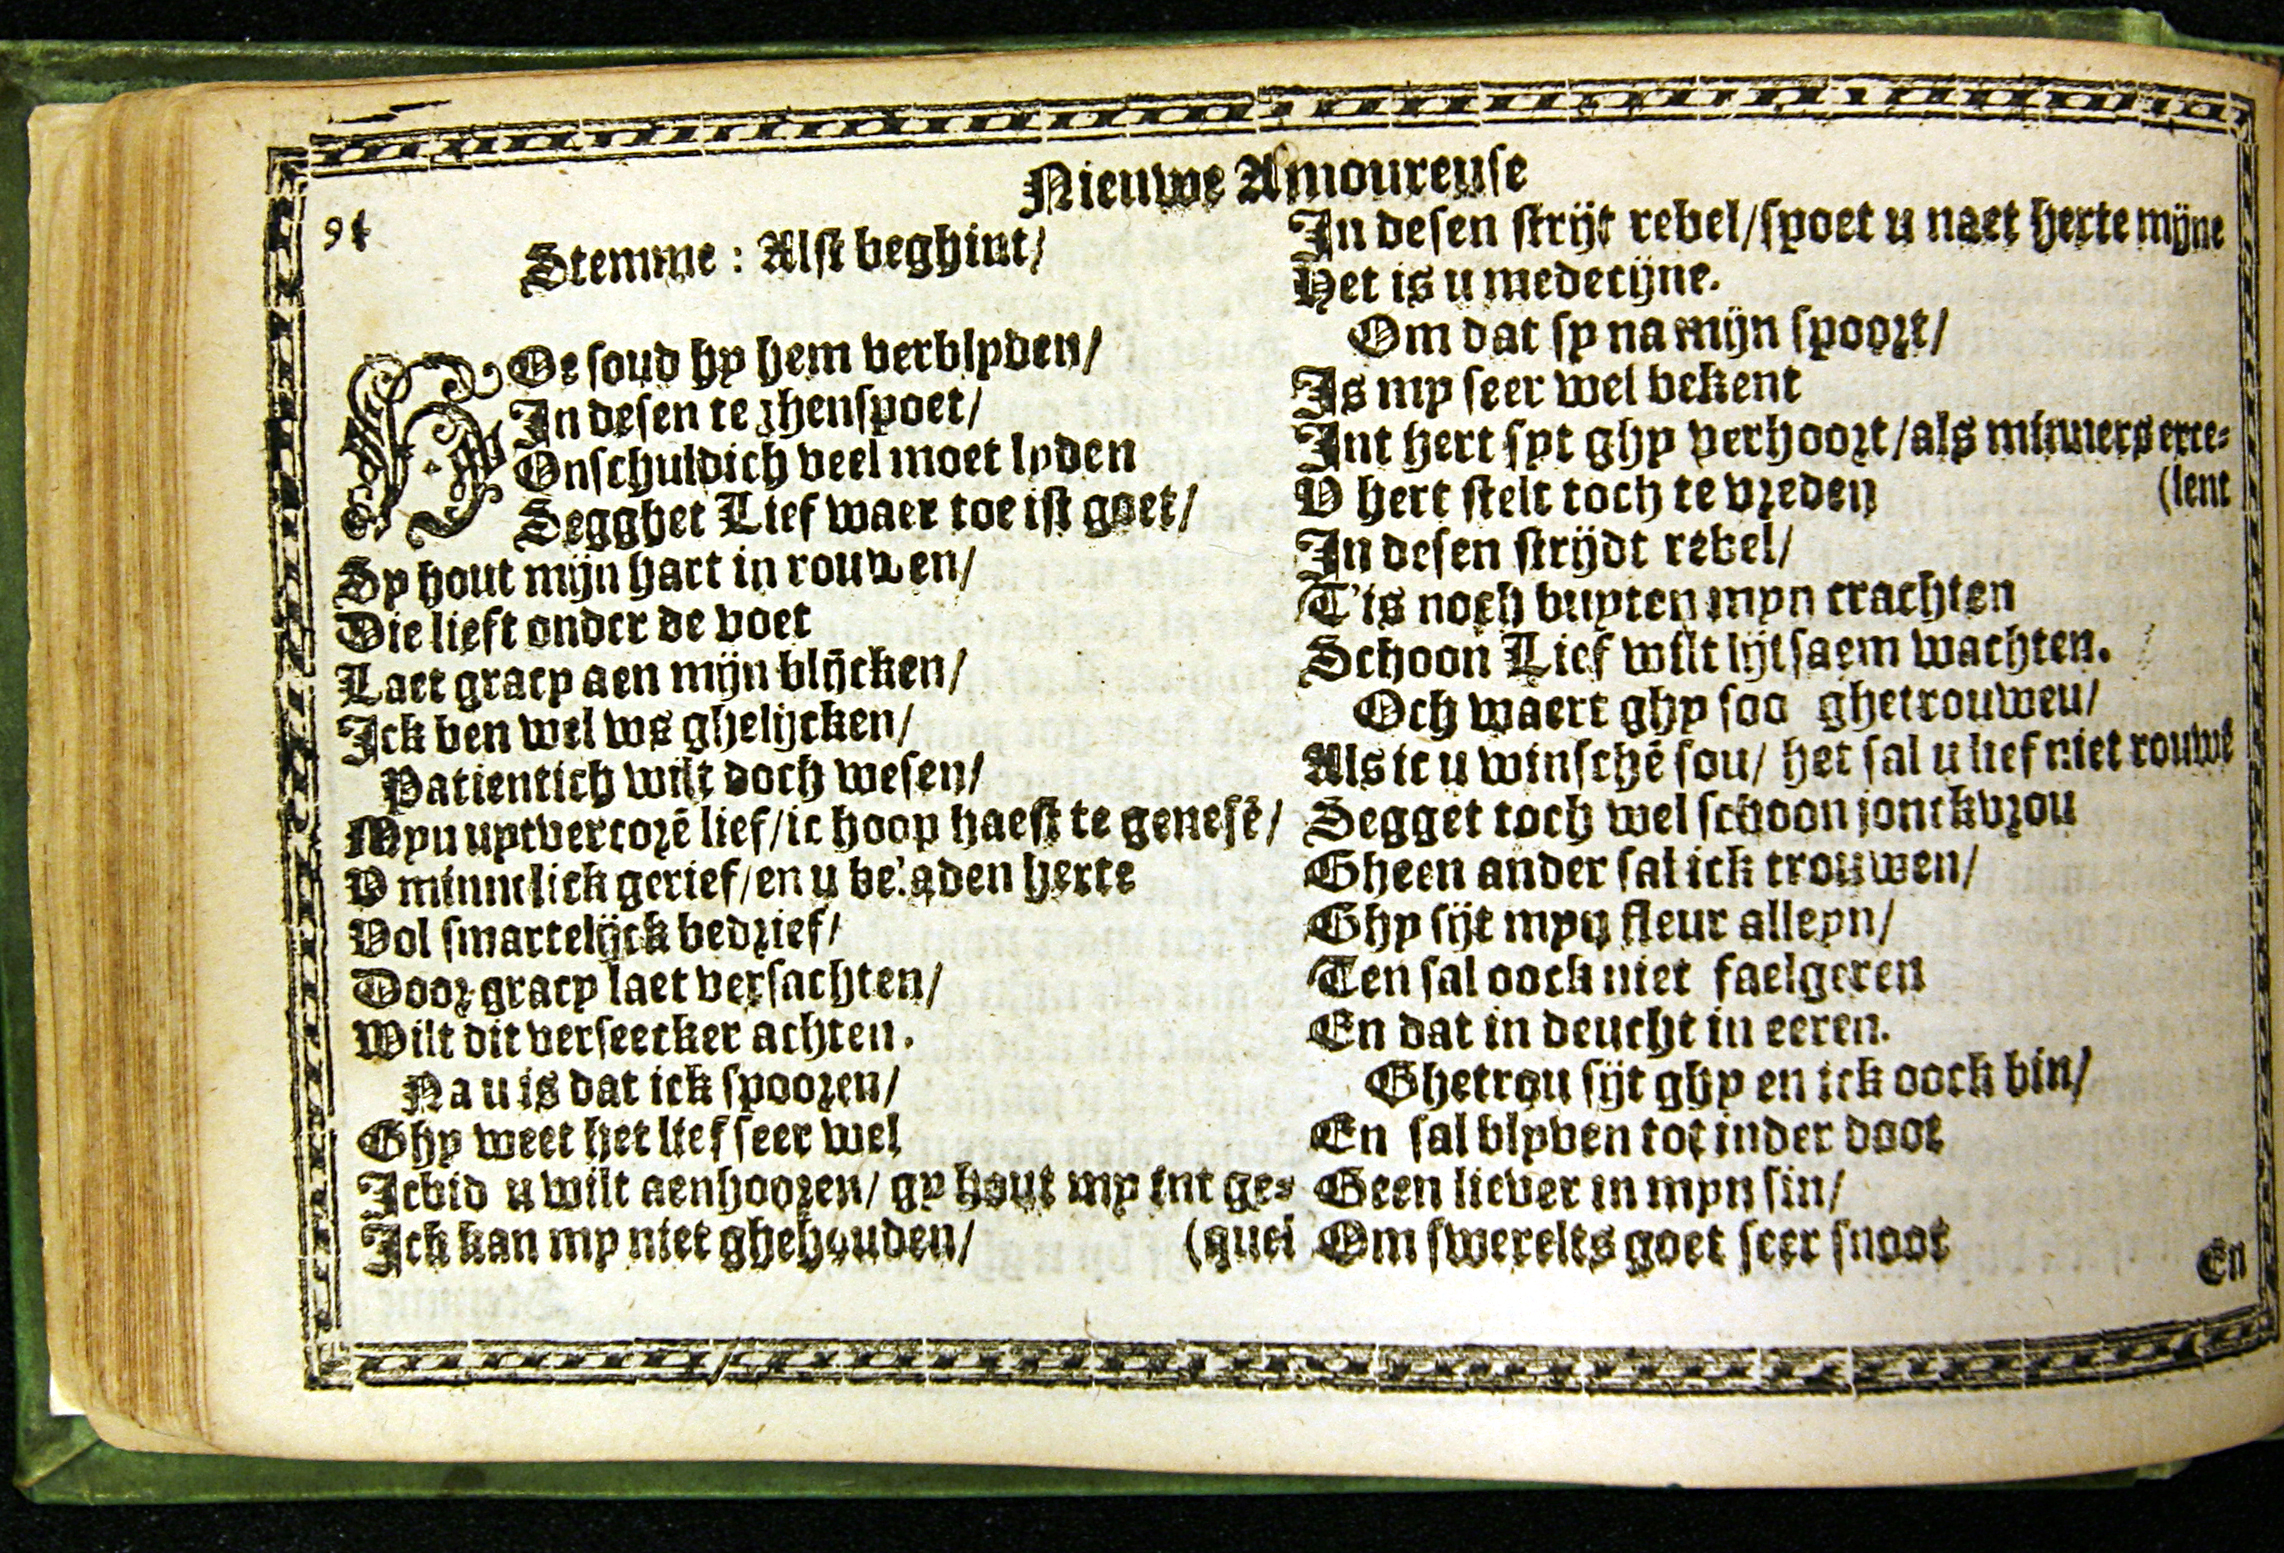 Nieuwe Amoureuse
94
Stemme: Alst beghint/
HOe soud hy hem verblyden/
In desen teghenspoet/
Onschuldich veel moet lyden
Segghet Lief waer toe ist goet/
Sy hout mijn hart in rouwen/
Die lieft onder de voet
Laet gracy aen mijn blijcken/
Ick ben wel ws ghelijcken/
Patientich wilt doch wesen/
Myn uytvercorē lief/ic hoop haest te genesē/
V minnelick gerief/en u beladen herte
Vol smartelijck bedrief/
Door gracy laet versachten/
Wilt dit verseecker achten.
Na u is dat ick spooren/
Ghy weet het lief seer wel
Ic bid u wilt aenhooren/ gy hout my int ge-
Ick kan my niet ghehouden/ (quel
In desen strijt rebel/spoet u naet herte mijne
Het is u medecijne.
Om dat sy na mijn spoort/
Is my seer wel bekent
Int hert syt ghy verhoort/als minners exce-
V hert stelt toch te vreden (lent
In desen strijdt rebel/
T'is noch buyten myn crachten
Schoon Lief wilt lijtsaem wachten.
Och waert ghy soo ghetrouweu/
Als ic u winschē sou/ het sal u lief niet rouwē
Segget toch wel schoon jonckvrou
Gheen ander sal ick trouwen/
Ghy sijt myn fleur alleyn/
Ten sal oock niet faelgeren
En dat in deucht in eeren.
Ghetrou sijt ghy en ick oock bin/
En sal blyven tot inder doot
Geen liever in myn sin/
Om swerelts goet seer snoot
En